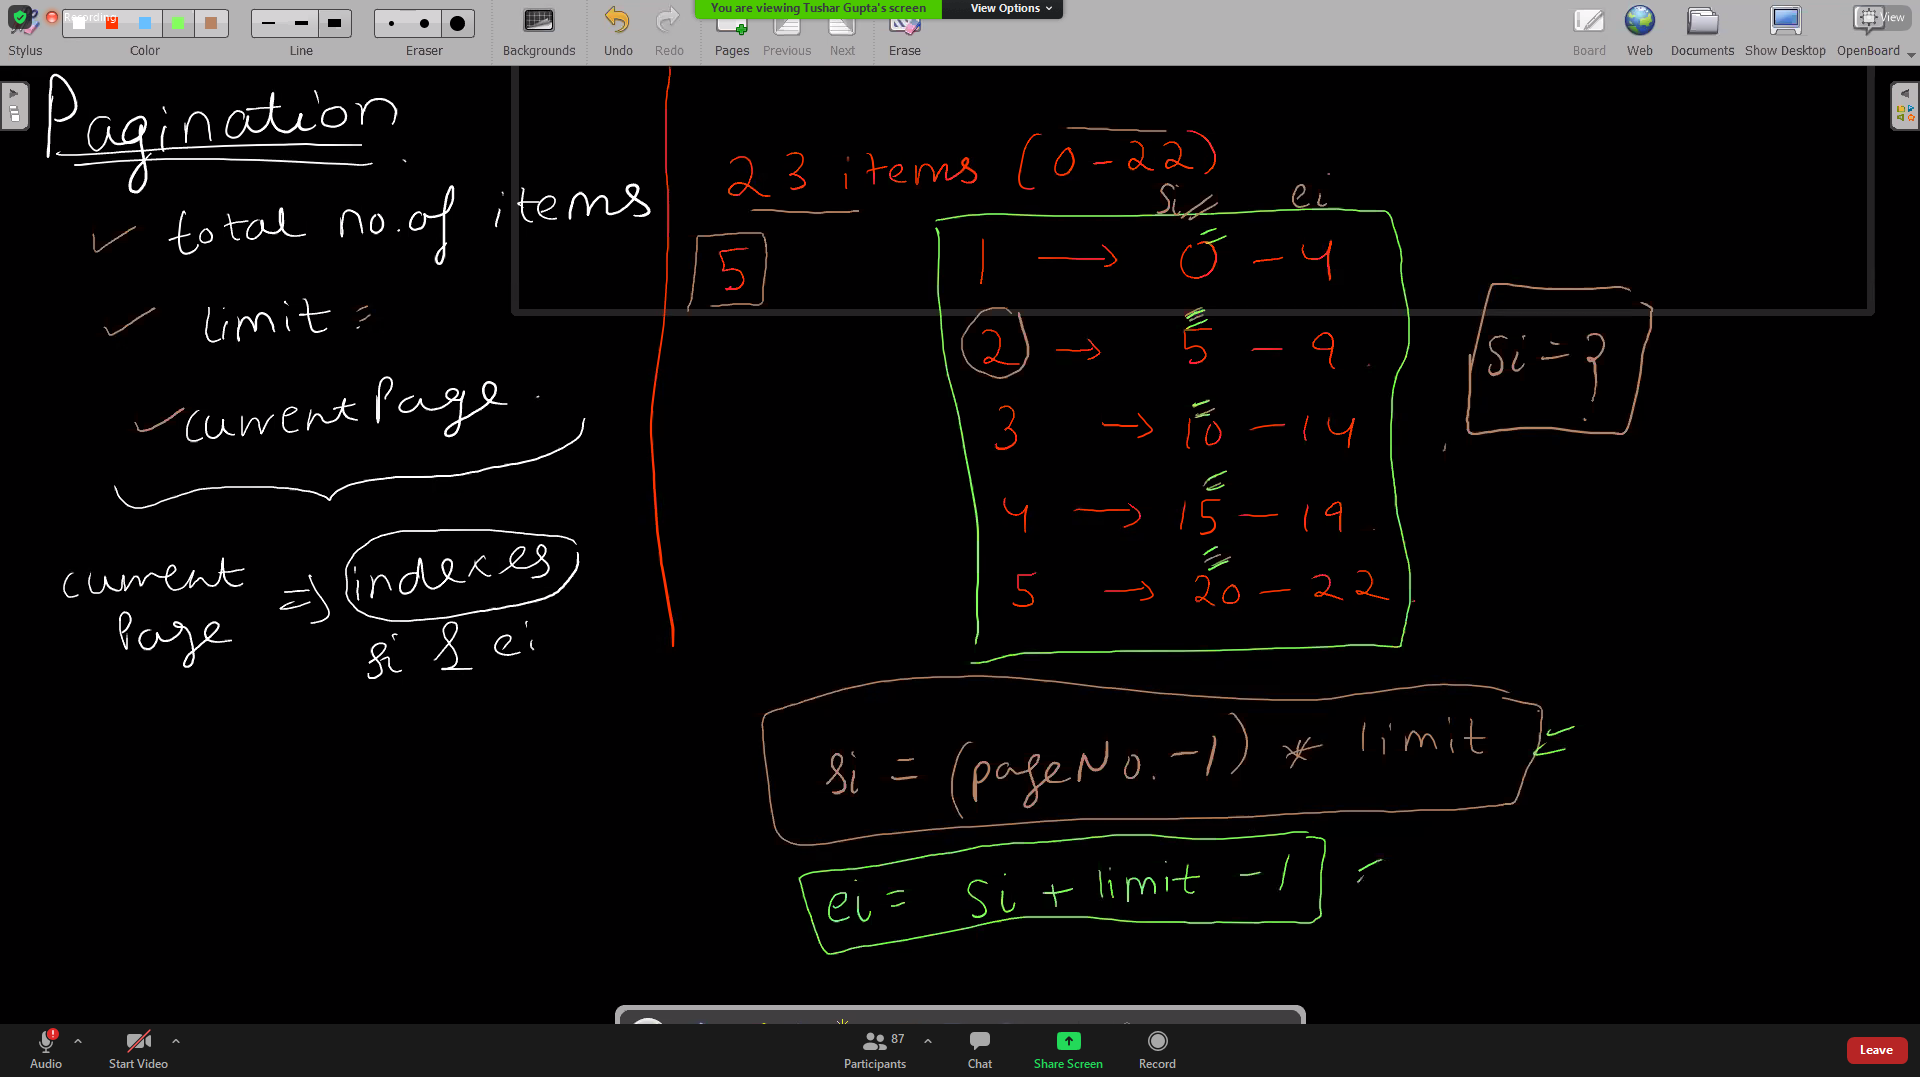 Recording
You are viewing Tushar Gupta's screen
View Options
View
Stylus
Color
Line
Eraser
Backgrounds
Undo
Redo
Pages
Previous
Next
Erase
Board
Web
Documents
Show Desktop
OpenBoard
Pagination
total no. of items
limit =
currentPage
current Page => indexes
si & ei
23 items (0-22)
si ei
5
1 → 0 - 4
2 → 5 - 9
3 → 10 - 14
4 → 15 - 19
5 → 20 - 22
si = ?
si = (pageNo. -1) * limit
ei = si + limit - 1
Audio
Start Video
87
Participants
Chat
Share Screen
Record
Leave